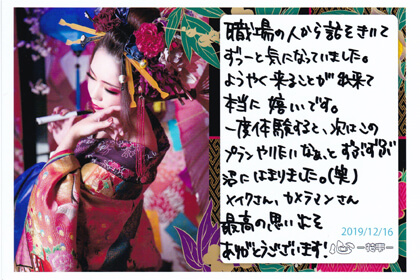 職場の人から話をきいて
ずぅーと気になっていました。
ようやく来ることが出来て
本当に嬉しいです。
一度体験すると、次はこの
プランやりたいなぁ、とずぶずぶ
沼にはまりました。(笑)
メイクさん、カメラマンさん
最高の思い出を
ありがとうございます!
2019/12/16